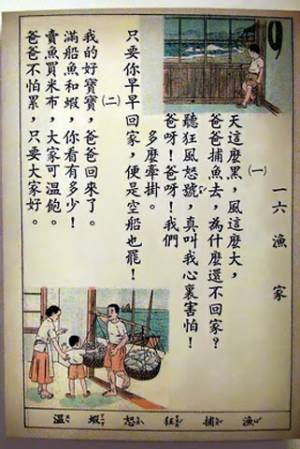 一六 漁家
(一)
天這麼黑,風這麼大,
爸爸捕魚去,為什麼還不回家?
聽狂風怒號,真叫我心裏害怕!
爸呀!爸呀!我們
多麼牽掛。
只要你早早回家,便是空船也罷!
(二)
我的好寶寶,爸爸回來了。
滿船魚和蝦,你看有多少!
賣魚買米布,大家可溫飽。
爸爸不怕累,只要大家好。
漁 捕 狂 怒 蝦 溫